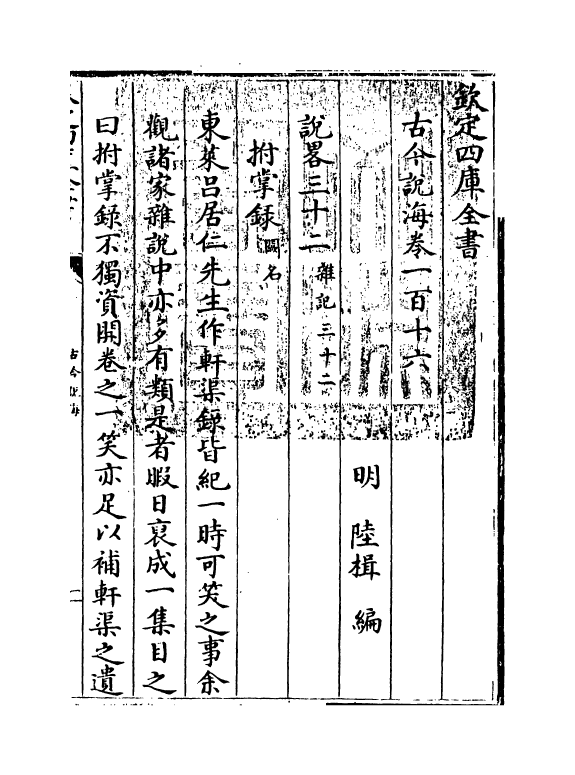 欽定四庫全書
古今說海卷一百十六
明 陸楫 編
說畧三十二 雜記三十二
拊掌録 闕名
東萊吕居仁先生作軒渠録皆紀一時可笑之事余
觀諸家雜說中亦多有類是者暇日裒成一集目之
曰拊掌録不獨資開卷之一笑亦足以補軒渠之遺
古今說海